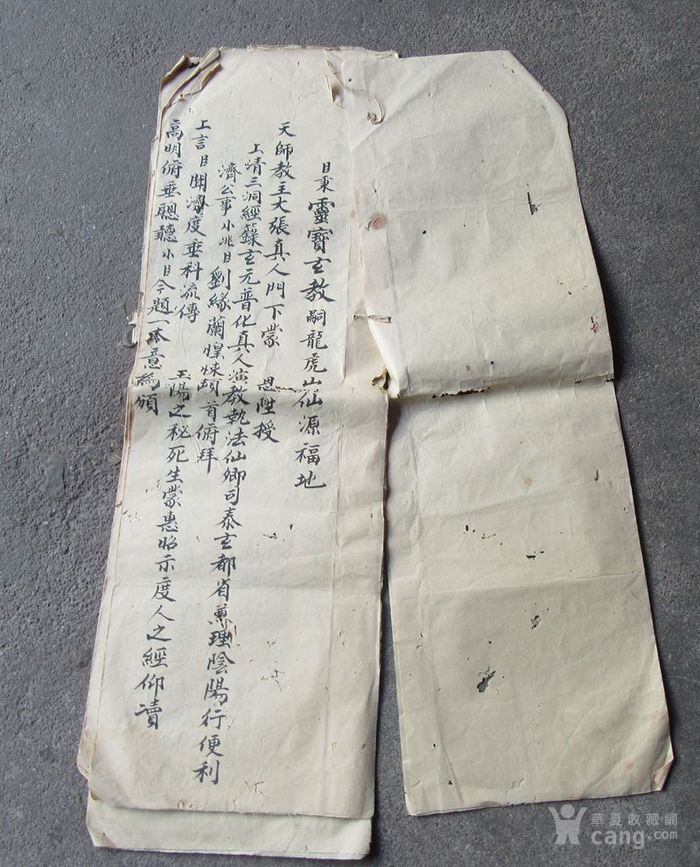 日秉靈寶玄教嗣龍虎山仙源福地
天師教主大張真人門下蒙 恩陞授
上清三洞經籙玄元普化真人演教執法仙卿司泰玄都省兼理陰陽行便利
濟公事小兆臣劉緣蘭惶悚頓首俯拜
上言臣聞濟度垂科流傳 玉陽之秘死生蒙惠昭示度人之經仰瀆
高明俯垂聽聽小臣今題一本意為頒
華夏收藏網
cang.com